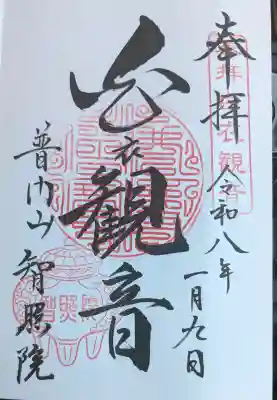 奉拝
令和八年
一月九日
白衣観音
普門山
智照院